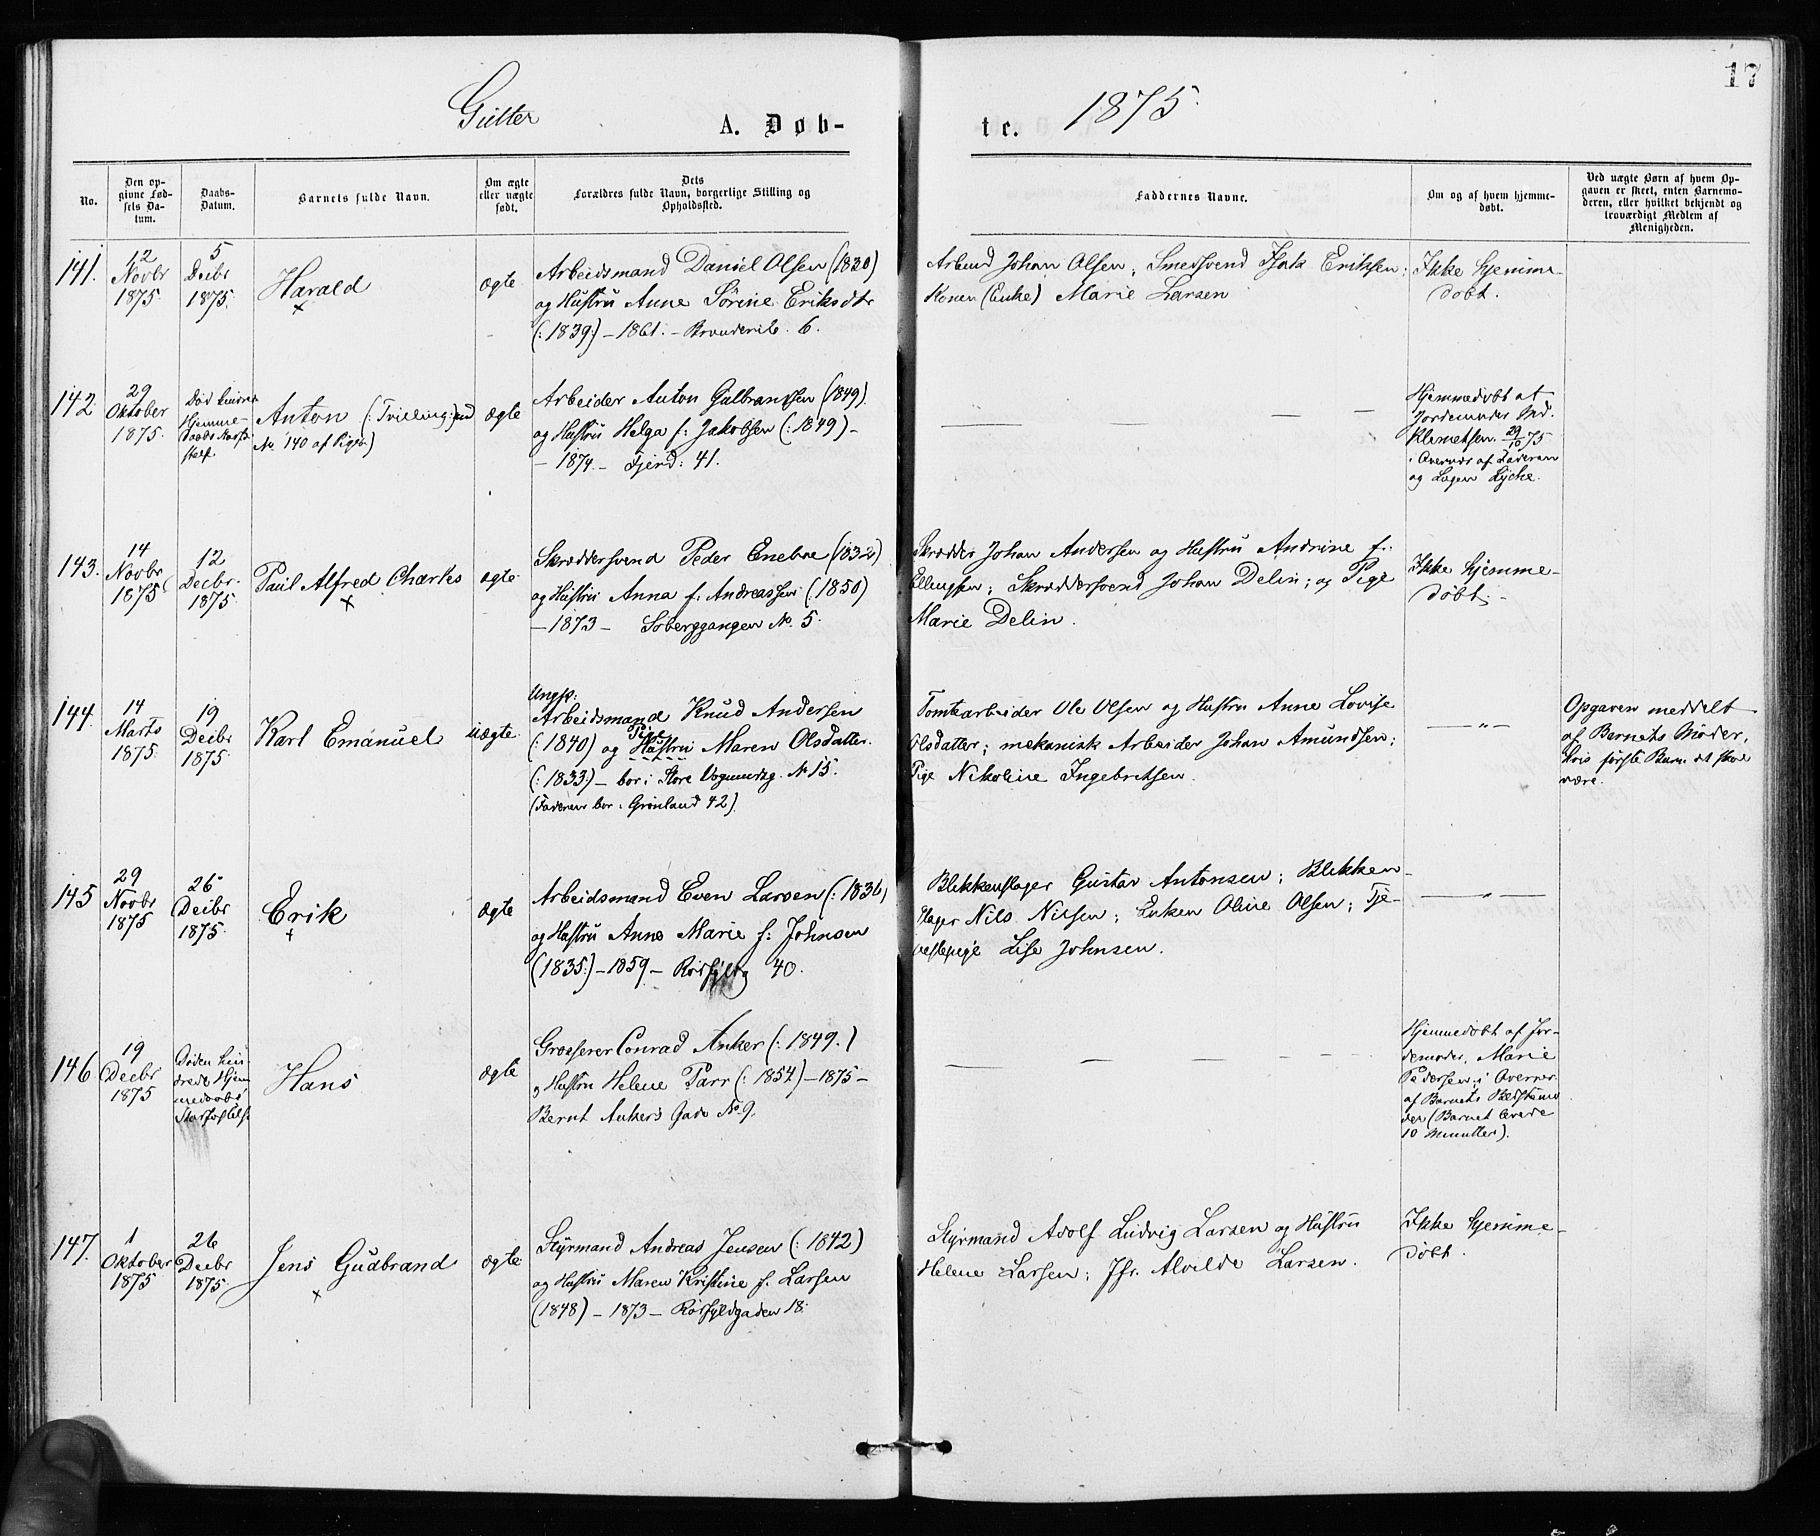 17
Gutter A. Døb- te. 1875.
No.
Den op-
givne Fød-
sels Da-
tum.
Daabs-
Datum.
Barnets fulde Navn.
Om ægte
eller uægte
født.
Dets
Forældres fulde Navn, borgerlige Stilling og
Opholdssted.
Faddernes Navne.
Om og af hvem hjemme-
døbt.
Ved uægte Børn af hvem Op-
gaven er skeet, enten Barnemo-
deren, eller hvilket bekjendt og
troværdigt Medlem af
Menigheden.
141.
12
Novbr
1875
5
Decbr
1875.
Harald
×
ægte
Arbeidsmand Daniel Olsen (1830)
og Hustru Anne Sørine Eriksdtr
(:1839:) – 1861. – 6.
Arbmd Johan Olsen; Smedsvend Isak Eriksen;
Konen (Enke) Marie Larsen
Ikke hjemme-
døbt.
142.
29
Oktober
1875.
Hjemme-
Anton (: Tvilling:)
No. 140 af Pigeb.)
ægte
Arbeider Anton Gulbrandsen (1849).
og Hustru Helga f: Jakobsen (:1849) –
– 1874 – Fjerd: 41.
— — —
Hjemmedøbt af
Jordemoder Ind.
Klemetsen 29/10 75
i Overvær af Faderen
og Lægen Lyche.
143.
14
Novbr
1875
12
Decbr.
1875
Paul Alfred Charles
×
ægte
Skræddersvend Peder Eneboe (1832)
og Hustru Anna f. Andreassen (1850)
– 1873 – Soberggangen No. 5.
Skrædder Johan Andersen og Hustru Andrine f.
Ellingsen; Skræddersvend Johan Delin; og Pige
Marie Delin.
Ikke hjemme-
døbt. –
144.
14
Marts
1875.
19
Decbr
1875
Karl Emanuel
uægte
Ungk:
Arbeidsmand Knud Andersen
Pige
(:1840) og Hustru Maren Olsdatter.
(:1833:) – bor i Store Vognmdsg. No 15.
(Faderen bor i Grønland 42).
Tomtearbeider Ole Olsen og Hustru Anne Lovise
Olsdatter; mekanisk Arbeider Johan Amundsen;
Pige Nikoline Ingebretsen.
— " —
Opgaven meddelt
af Barnets Moder,
hvis første Barn det skal
være.
145
29
Novbr
1875
26
Decbr
1875.
Erik
+
ægte
Arbeidsmand Even Larsen (:1836)
og Hustru Anne Marie f: Johnsen
(1835:) – 1859 – Rørfylvg 40.
Blikkenslager Gustav Antonsen; Blikken-
slager Nils Nilsen; Enken Oline Olsen; Tje-
nestepige Lise Johnsen.
— " —
146
19
Decbr
1875
Døden hin-
drede Hjem-
medaabs
Stadfæstelse
Hans
ægte
Grosserer Conrad Anker (:1849.)
og Hustru Helene Parr (:1854) – 1875 –
Bernt Ankers Gade No 9.
— — — —
Hjemmedøbt af Jor-
demoder, Marie
Pedersen; i Overvær
af Barnets Bedstemo-
der (Barnet levede
10 Minutter).
147.
1
Oktober
1875
26
Decbr
1875
Jens Gudbrand
×
ægte
Styrmand Andreas Jensen (:1842)
og Hustru Maren Kristine f. Larsen
(1848) – 1873 – Rørfyldgaden 18.
Styrmand Adolf Ludvig Larsen og Hustru
Helene Larsen; Jfr. Alvilde Larsen.
Ikke hjemme-
døbt.